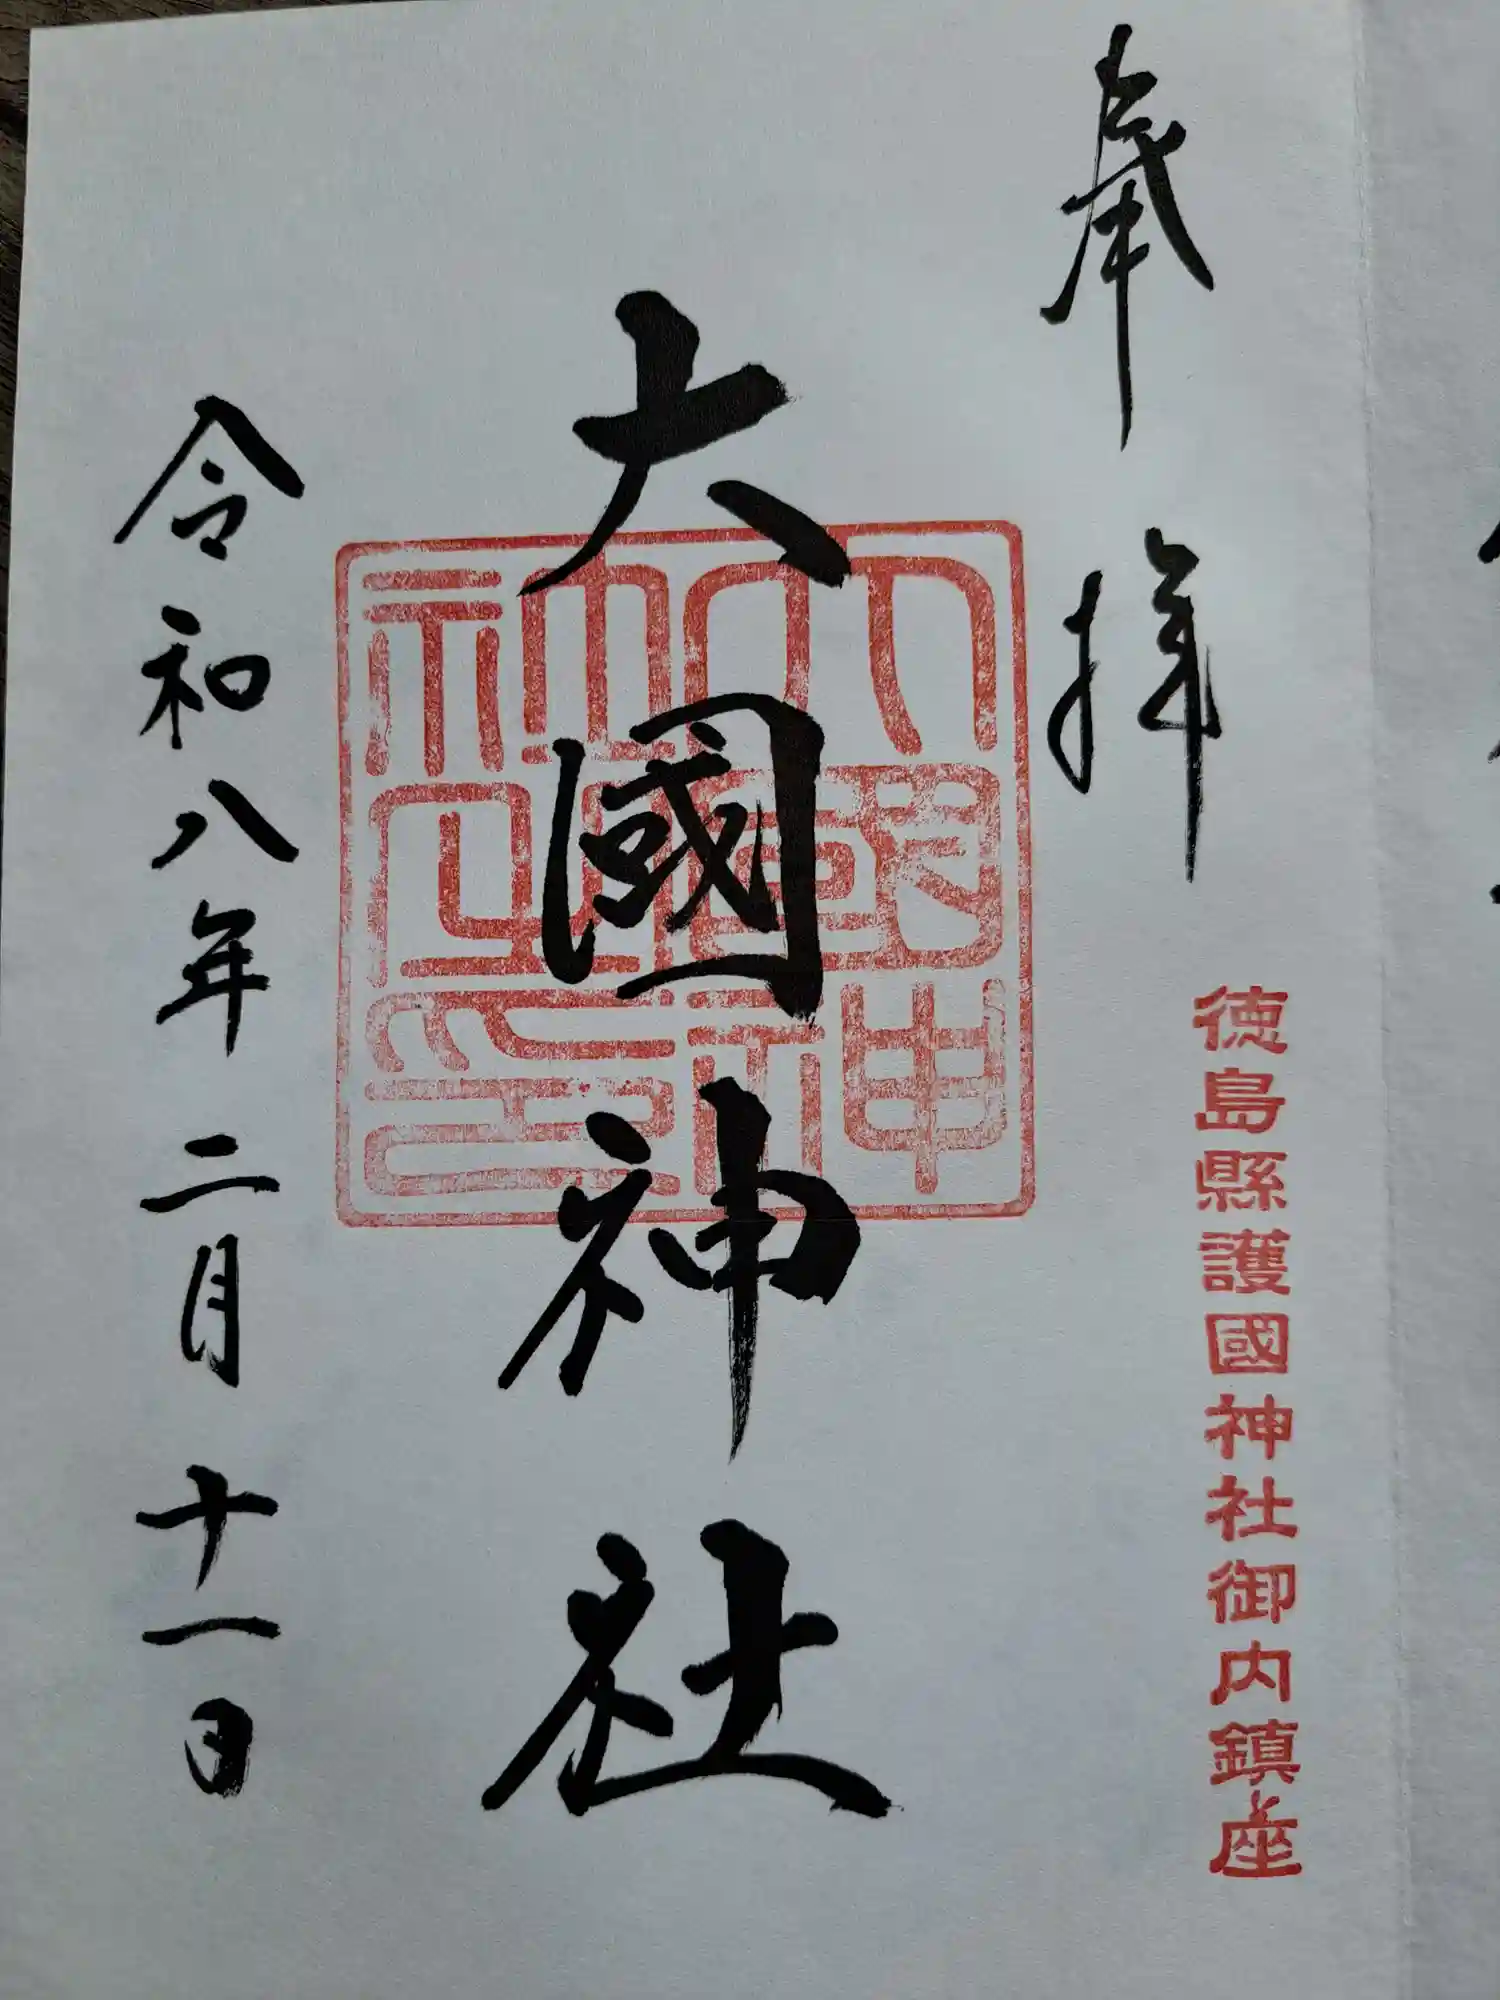 奉拝
徳島縣護國神社御内鎮座
大國神社
大國神社之印
令和八年二月十一日